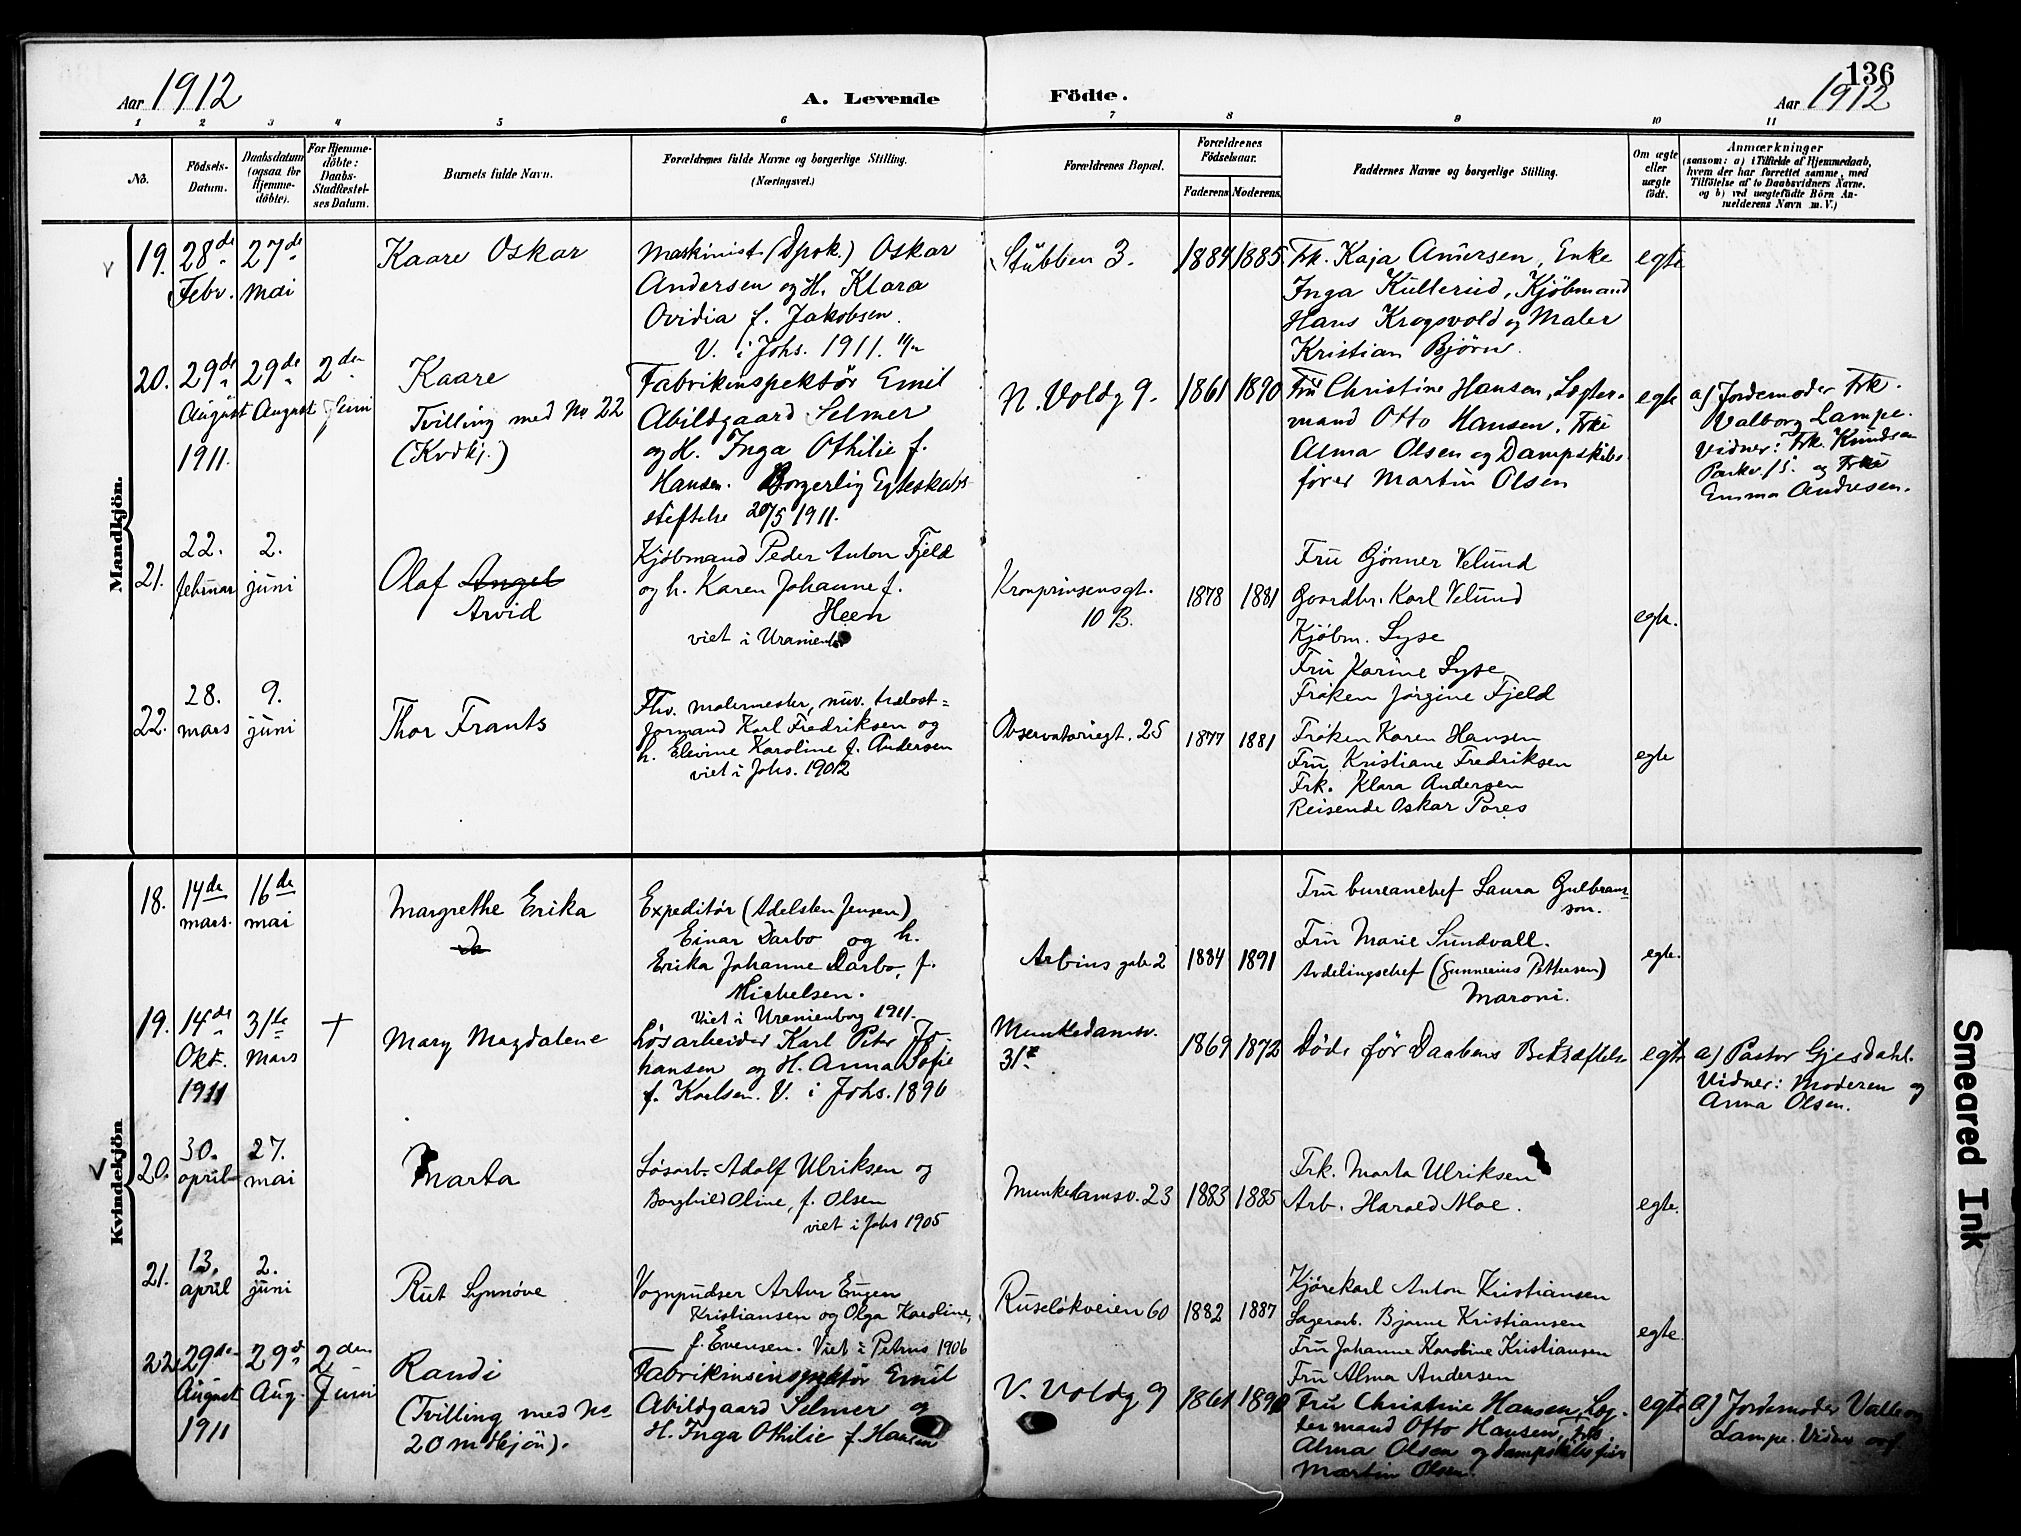 136
Aar 1912
A. Levende
Födte.
Aar 1912
1 2 3 4 5 6 7 8 9 10 11
No.
Födsels-
Datum.
Daabsdatum
(ogsaa for
Hjemme-
döbte).
For Hjemme-
döbte:
Daabs-
Stadfæstel-
ses Datum.
Barnets fulde Navn.
Forældrenes fulde Navne og borgerlige Stilling.
(Næringsvei.)
Forældrenes Bopæl.
Forældrenes
Födselsaar.
Faderens
Moderens
Faddernes Navne og borgerlige Stilling.
Om ægte
eller
uægte
født.
Anmærkninger
(saasom: a) i Tilfælde af Hjemmedaab,
hvem der har forrettet samme, med
Tilföielse af to Daabsvidners Navne,
og b) ved uægtefödte Börn An-
melderens Navn m. V.)
Mandkjön.
19.
28de
Febr.
27de
Mai
Kaare Oskar
Maskinist (Dpsk.) Oskar
Andersen og H. Klara
Ovidia f. Jakobsen.
V. i Johs. 1911.
Stubben 3.
1884
1885
Frk. Kaja Andersen, Enke
Inga Kullerud, Kjöbmand
Hans Krogsvold og Maler
Kristian Bjørn.
egte
20.
29de
August
1911.
29de
August
2den
Juni
Kaare
Tvilling med No 22
(Kvdkj.)
Fabrikinspektør Emil
Abildgaard Selmer
og H. Inga Othilie f.
Hansen. Borgerlig Egteskabs
stiftelse 20/5 1911.
N. Voldg 9.
1861
1890
Fru Christine Hansen, Lægter-
mand Otto Hansen, Frk.
Alma Olsen og Dampskibs-
fører Martin Olsen
egte
a) Jordemoder Frk.
Valborg Lampe.
Vidner: Frk. Knudsen
Parkv. 15. og Frk.
Emma Andresen.
21.
22.
februar
2.
juni
Olaf Angel
Arvid
Kjøbmand Peder Anton Fjeld
og h. Karen Johanne f.
Heen
viet i Uranienb
Kronprinsensgt.
10 B.
1878
1881
Fru Gönner Velund
Gaardbr. Karl Velund
Kjøbm. Lyse
Fru Karine Lyse
Frøken Jørgine Fjeld
egte.
22.
28.
mars
9.
juni
Thor Frants
Fhv. malermester, nuv. trælast-
formand Karl Fredriksen og
h. Elevine Karoline f. Andersen
viet i Johs. 1902
Observatoriegt. 25
1877
1881
Frøken Karen Hansen
Fru Kristiane Fredriksen
Frk. Klara Andersen
Reisende Oskar Pores
egte
Kvindekjön
18.
14de
mars.
16de
mai
Margrethe Erika
Expeditör (Adelsten Jensen)
Einar Darbo og h.
Erika Johanne Darbo, f.
Michelsen.
Viet i Uranienborg 1911.
Arbins gate 2
1884
1891
Fru bureauchef Laura Gulbrans-
son.
Fru Marie Sundvall.
Avdelingschef (Gunnerius Pettersen)
Maroni.
egte.
19.
14de
Okt.
1911
31te
Mars
+
Mary Magdalene
Løsarbeider Karl Peter Jo-
hansen og H. Anna Sofie
f. Karlsen. V. i Johs. 1896
Munkedamsv.
31
1869
1872
Døde før Daabens Bekræftelse
egte
a) Pastor Gjesdahl.
Vidner: Moderen og
Anna Olsen.
20.
30.
april
27.
mai
Marta
Løsarb. Adolf Ulriksen og
Borghild Oline, f. Olsen
viet i Johs 1905
Munkedamsv. 23
1883
1885
Frk. Marta Ulriksen
Arb. Harald Moe.
egte.
21.
13.
april
2.
juni
Rut Synnøve
Vognpudser Artur Eugen
Kristiansen og Olga Karoline,
f. Evensen. Viet i Petrus 1906
Ruseløkveien 60
1882
1887
Kjørekarl Anton Kristiansen
Lagerarb. Bjarne Kristiansen
Fru Johanne Karoline Kristiansen
Fru Alma Andersen
egte.
22
29de
August
1911
29de
Aug.
2den
Juni
Randi
(Tvilling med No
20 m. kjön).
Fabrikinspektør Emil
Abildgaard Selmer og
H. Inga Othilie f. Hansen
V. Voldg 9
1861
1890
Fru Christine Hansen, Læg-
termand Otto Hansen, Frk.
Alma Olsen og Dampskibsfører
Martin Olsen.
egte
a) Jordemoder Valborg
Lampe. Vidner ovf.
Smeared Ink